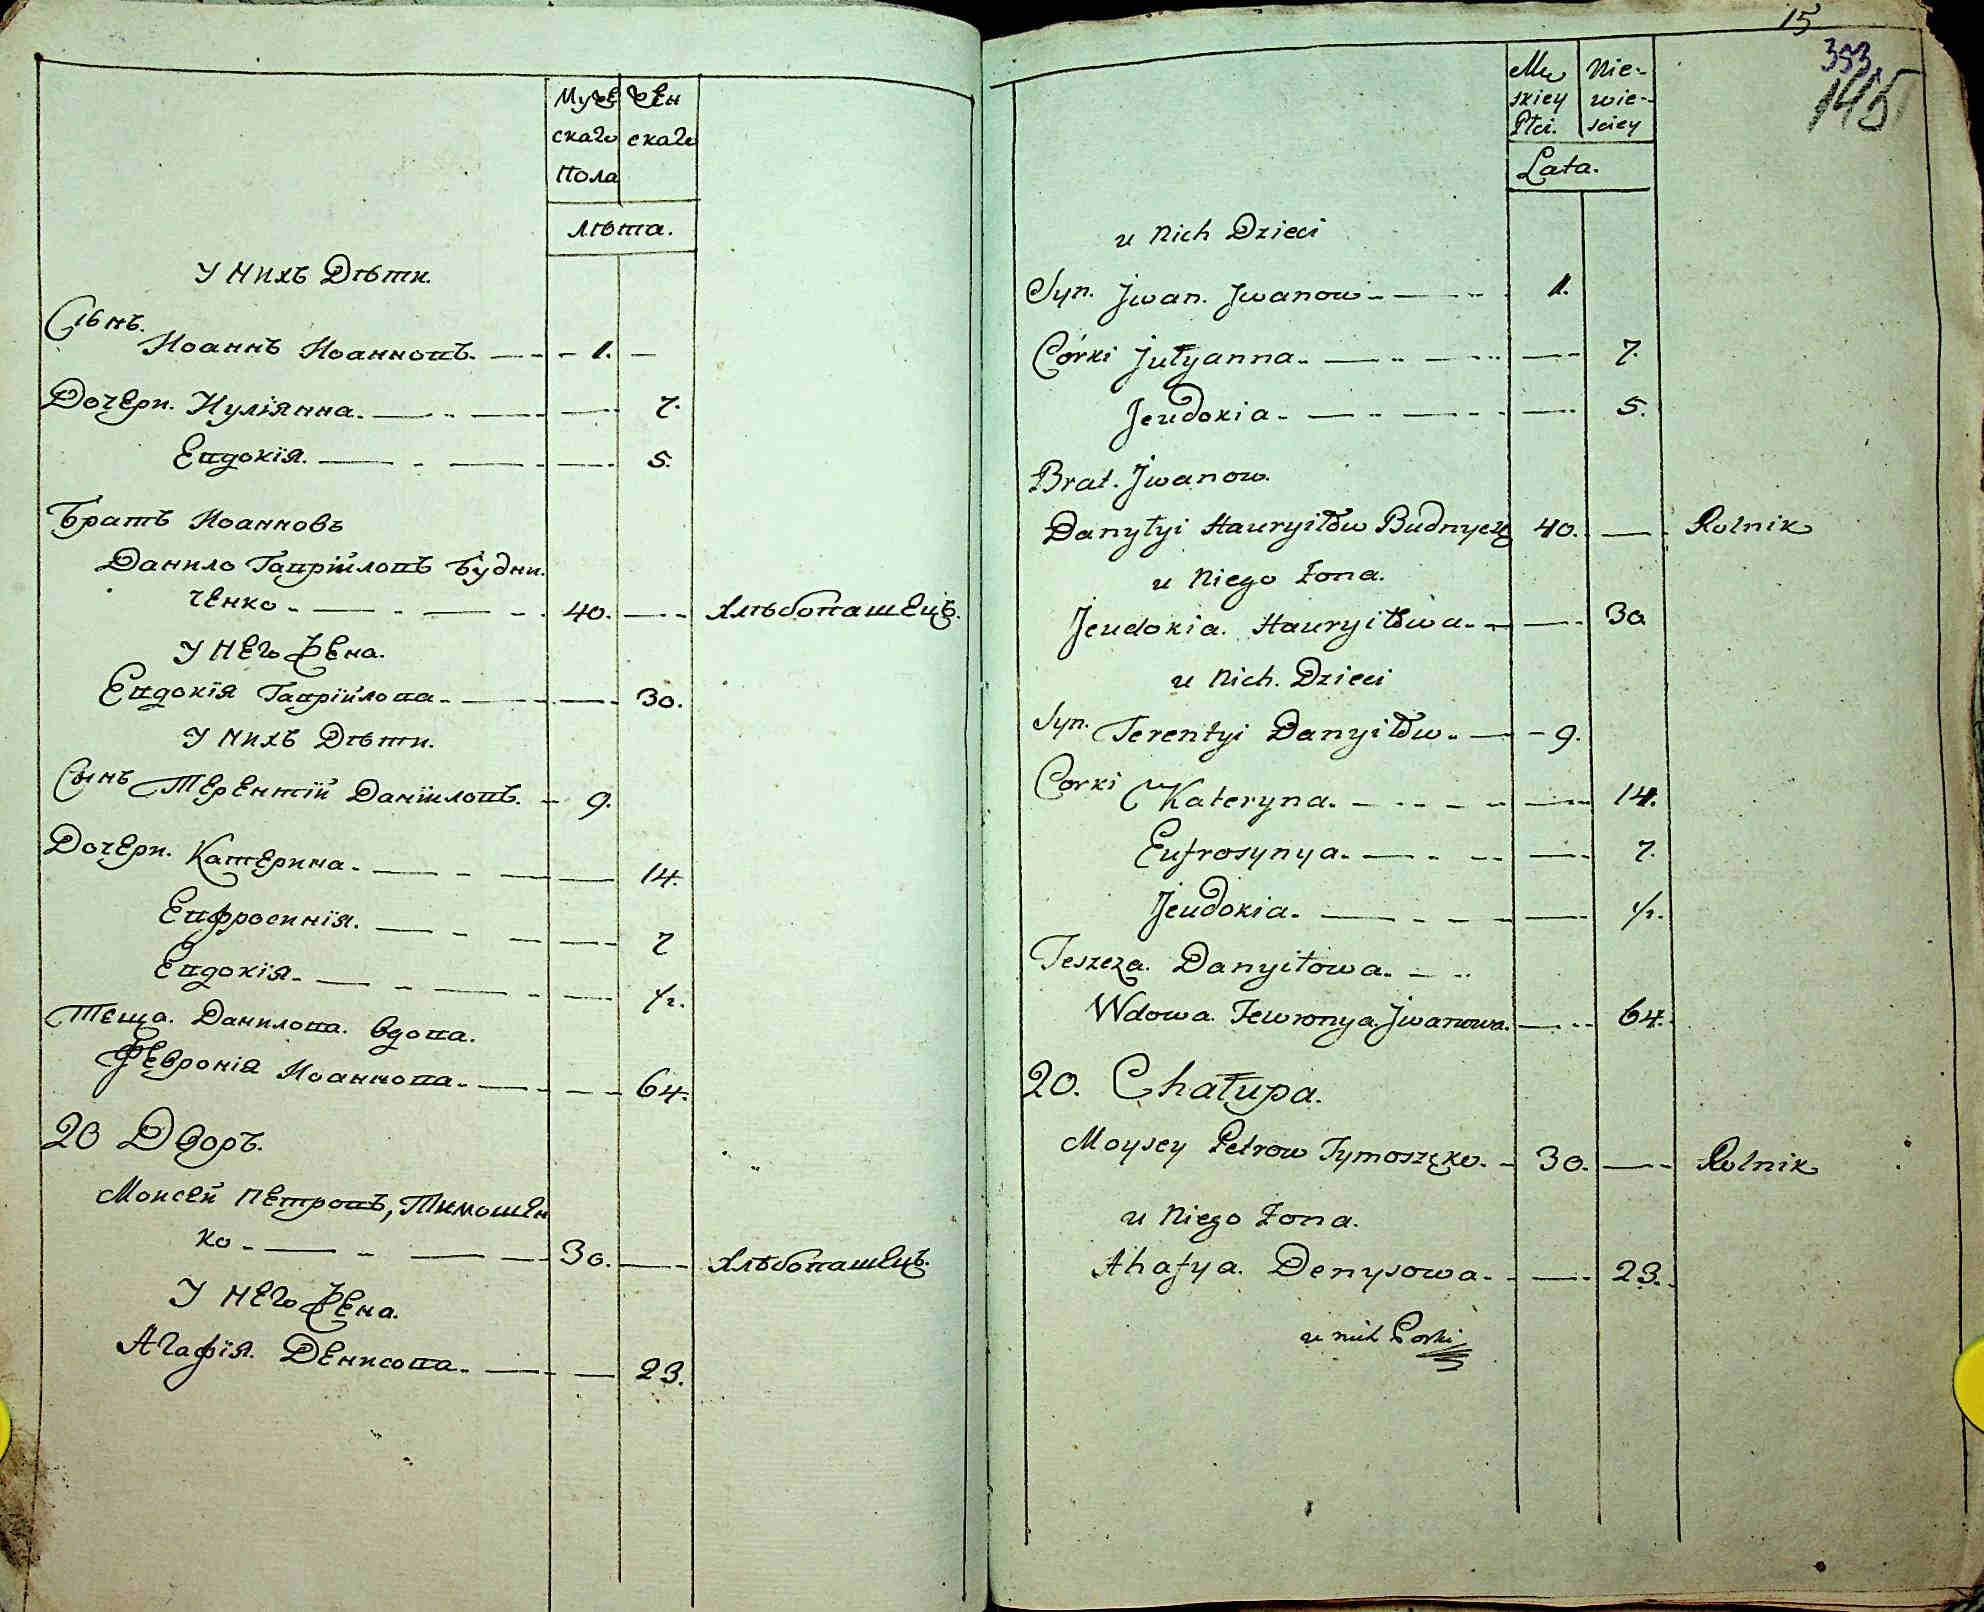 Муже Жен
скаго скаго
Пола
Лѣта.
У Нихъ Дѣти.
Сынъ.
Иоаннъ Иоанновъ. — 1. —
Дочери. Иулїянна. — — 7.
Евдокїя. — — 5.
Братъ Иоанновъ
Данило Гаврїиловъ Будни.
ченко — 40. — Хлѣбопашецъ.
У Него Жена.
Евдокїя Гаврїилова — — 30.
У Нихъ Дѣти.
Сынъ Терентїй Данїиловъ. — 9.
Дочери. Катерина — — 14.
Евфросинїя. — — 7
Евдокїя — — 1/2.
Теща. Данилова. Вдова.
Февронїя Иоаннова — — 64.
20 Дворъ.
Моисей Петровъ, Тимошен
ко — 30. — Хлѣбопашецъ.
У Него Жена.
Агафїя. Денисова — — 23.
15
393
145
Mę Nie-
skiey wie-
Płci. sciey
Lata.
u Nich Dzieci
Syn. Jwan. Jwanow — 1.
Córki Jułyanna — — 7.
Jeudokia — — 5.
Brat. Jwanow.
Danyłyi Hauryiłów Budnycz 40. — Rolnik
u Niego Żona.
Jeudokia. Hauryiłowa — — 30
u Nich. Dzieci
Syn. Terentyi Danyiłów — 9.
Corki Kateryna. — — 14.
Eufrosynya — — 7.
Jeudokia — — 1/2.
Teszcza. Danyiłowa —
Wdowa. Fewronya. Jwanowa. — 64.
20. Chałupa.
Moysey Petrow Tymoszęko. — 30. — Rolnik
u Niego Żona.
Ahafya. Denysowa — — 23.
u nich Corki